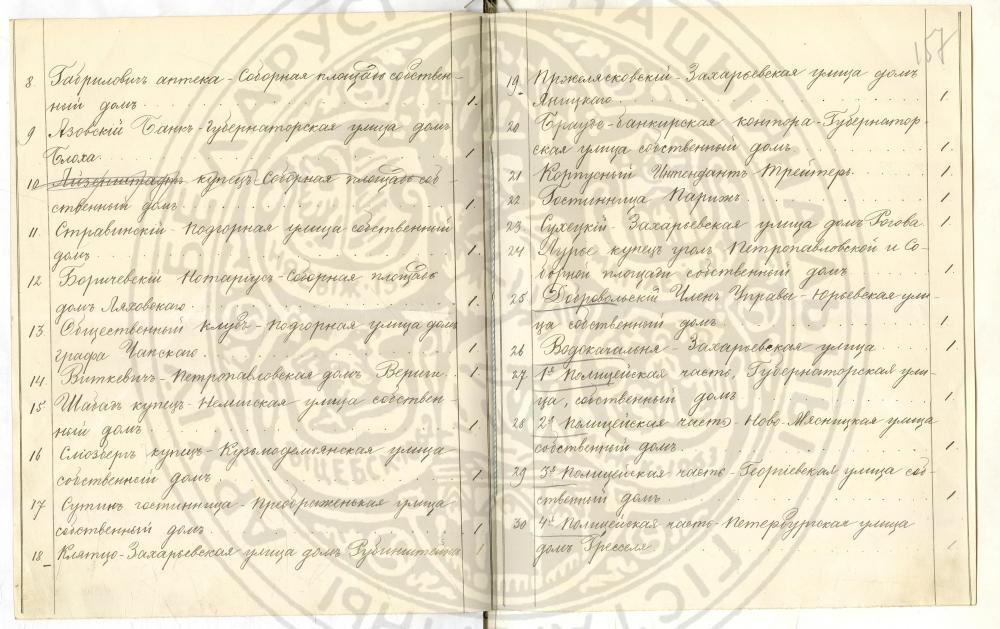 8. Гаврилович аптека - Соборная площадь собствен-
ный домъ . . . 1.
9 Азовскій Банкъ - Губернаторская улица домъ
Блоха . . . 1
10 Айзенштадтъ купецъ Соборная площадь соб-
ственный домъ . . . 1
11. Стравинскій - Подгорная улица собственный
домъ . . . 1.
12 Боричевскій Нотаріусъ - Соборная площадь
домъ Ляховскаго . . . 1.
13. Общественный клубъ - Подгорная улица домъ
графа Чапскаго . . . 1.
14. Виткевичъ - Петропавловская домъ Вериги . . 1
15 Шабадъ купецъ - Немигская улица собствен-
ный домъ . . . 1
16 Слiозбергъ купецъ - Кузьмодемьянская улица
собственный домъ . . . 1
17 Сутинъ гостинница - Преображенская улица
собственный домъ . . . 1
18 Клятцо - Захарьевская улица домъ Рубинштейна 1
157
19. Пржелясковскій - Захарьевская улица домъ
Яницкаго . . . 1.
20 Браудо - банкирская контора - Губернатор-
ская улица собственный домъ . . . 1
21 Корпусный Интендантъ Трейтеръ . . . 1.
22 Гостинница Парижъ . . . 1.
23. Сулецкій - Захарьевская улица домъ Рогова . 1.
24 Лурье купецъ уголъ Петропавловской и Со-
борной площади собственный домъ . . . 1.
25 Добровольскій Членъ Управы - Юрьевская ули-
ца собственный домъ . . . 1.
26 Водокачальня - Захарьевская улица . . . 1.
27. 1я Полицейская часть, Губернаторская ули-
ца, собственный домъ . . . 1.
28 2я Полицейская часть - Ново-Мясницкая улица
собственный домъ . . . 1.
29 3я Полицейская часть - Георгіевская улица соб-
ственный домъ . . . 1
30 4я Полицейская часть - Петербургская улица
домъ Гресселя . . . 1